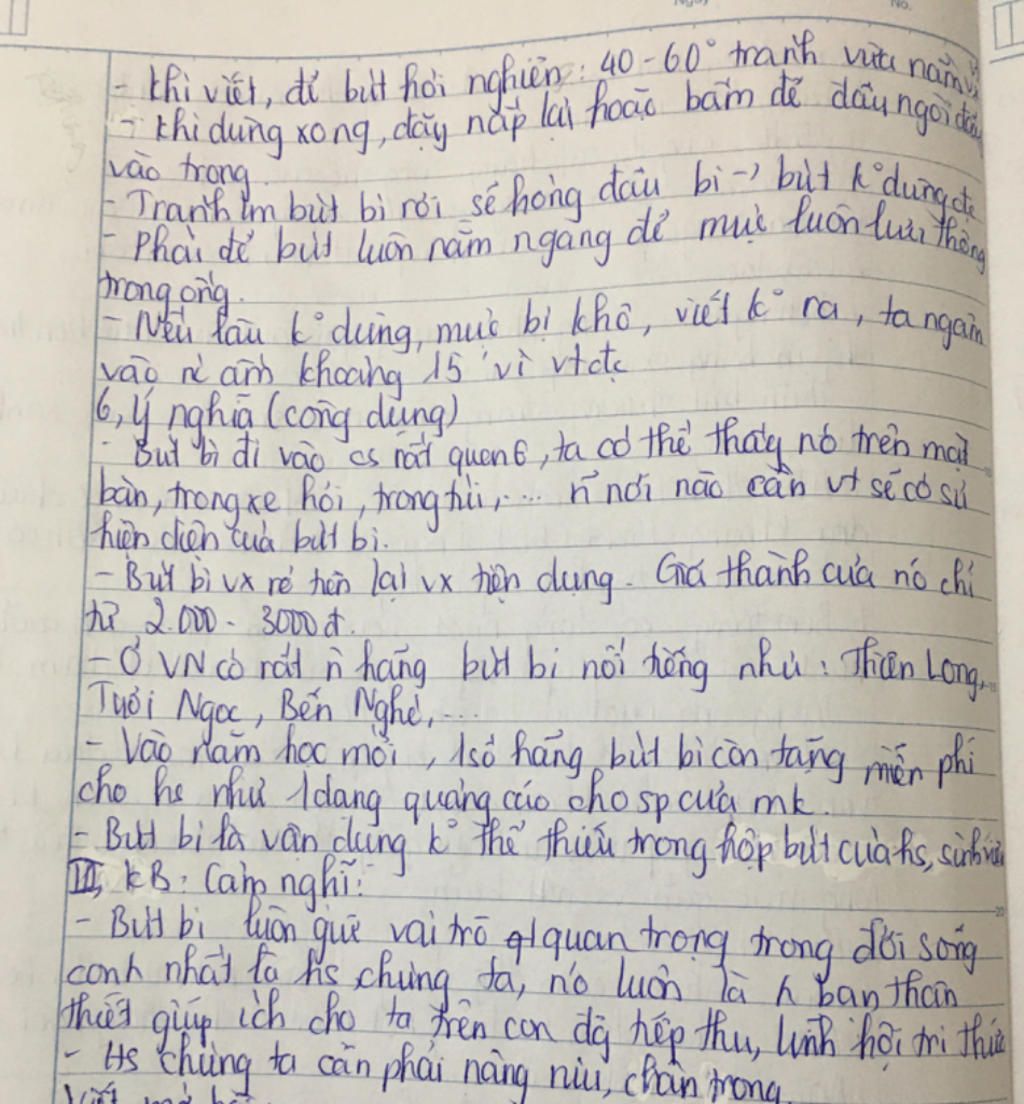 - Khi viết, để bút hơi nghiên: 40-60° tránh vừa nằm
- Khi dùng xong, đậy nắp lại hoặc bấm để đầu ngòi
vào trong.
- Tránh bút bi rơi sẽ hỏng đầu bi -> bút k° dùng đc
- Phải để bút luôn nằm ngang để mực luôn lưu thông
trong ống.
- Nếu lâu k° dùng, mực bị khô, viết k° ra, ta ngâm
vào nc ấm khoảng 15' vt đc
6, ý nghĩa (công dụng)
- Bút bi đi vào cs rất quen, ta có thể thấy nó trên mặt
bàn, trong xe hơi, trong túi, ... nơi nào cần vt sẽ có sự
hiện diện của bút bi.
- Bút bi vx rẻ tiền lại vx tiện dụng. Giá thành của nó chỉ
từ 2.000 - 3000 đ.
- Ở VN có rất n hãng bút bi nổi tiếng như: Thiên Long,
Tuổi Ngọc, Bến Nghé, ...
- Vào năm học mới, 1 số hãng bút bi còn tặng miễn phí
cho hs như 1 dạng quảng cáo cho sp của mk.
- Bút bi là vận dụng k° thể thiếu trong hộp bút của hs, sinh viên
III, KB: Cảm nghĩ:
- Bút bi luôn giữ vai trò quan trọng trong đời sống
con nhất là hs chúng ta, nó luôn là bạn thân
thiết giúp ích cho ta trên con đg tiếp thu, lĩnh hội tri thức
- Hs chúng ta cần phải nâng niu, chân trọng